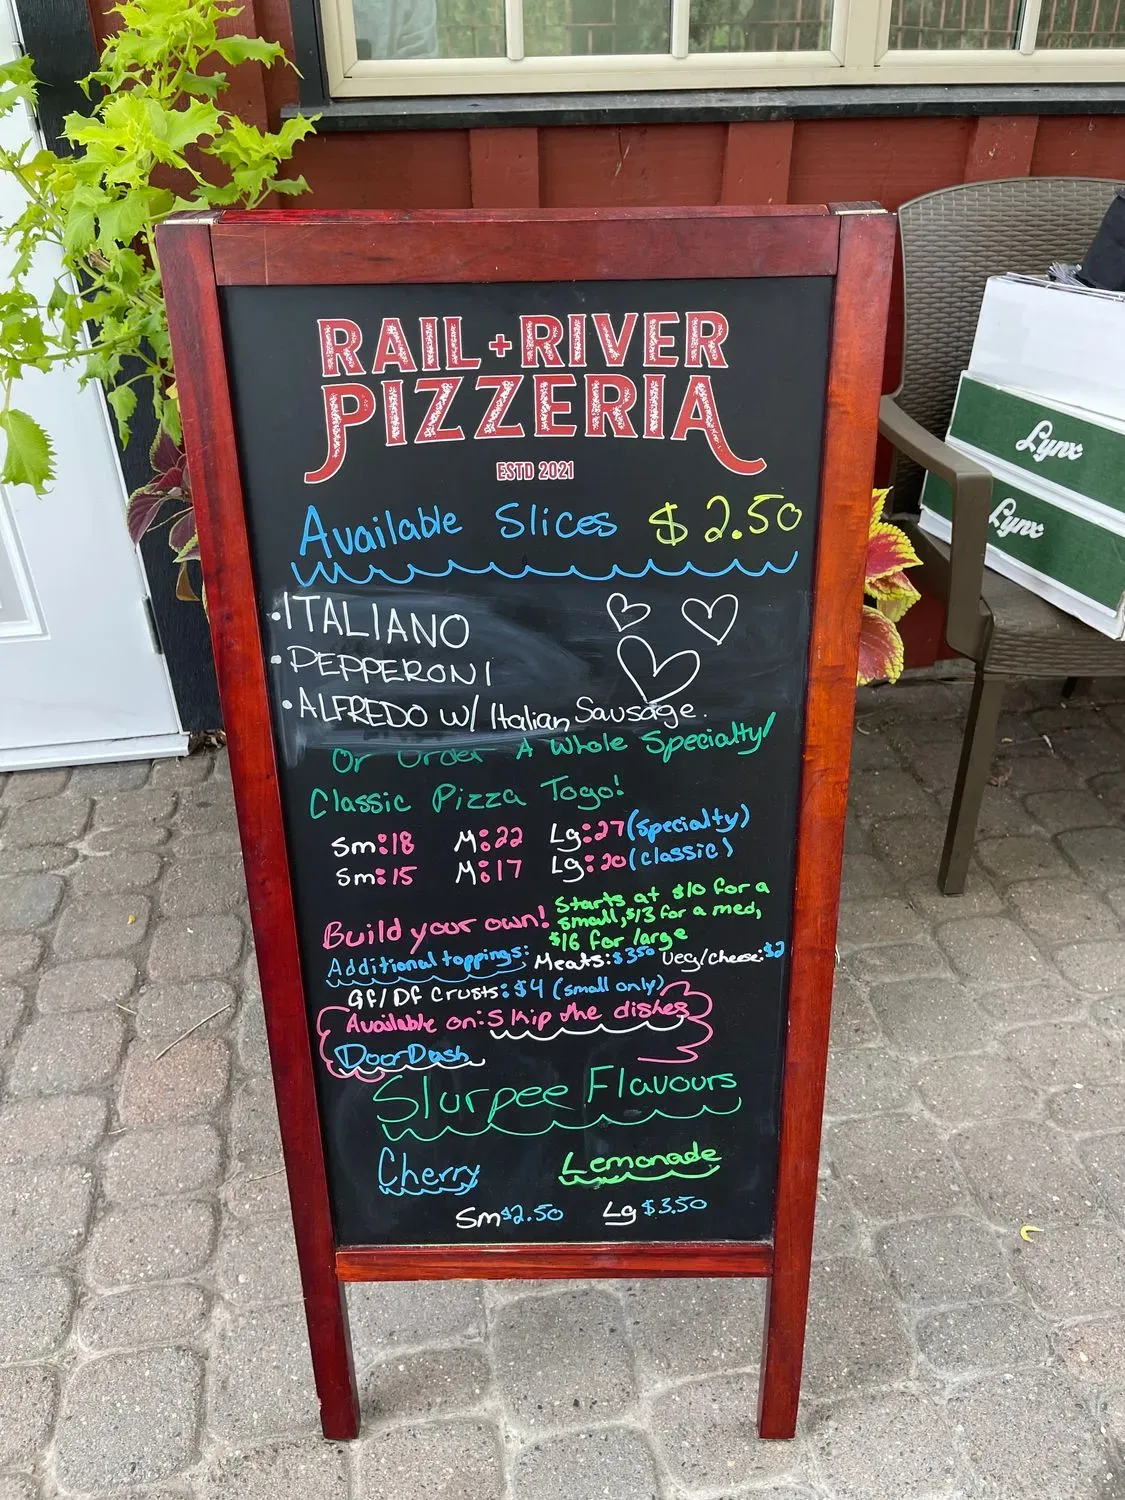 RAIL + RIVER
PIZZERIA
ESTD 2021
Available Slices $2.50
• ITALIANO
• PEPPERONI
• ALFREDO W/ Italian Sausage.
Or Order A Whole Specialty/
Classic Pizza Togo!
Sm:18 M:22 Lg:27 (specialty)
Sm:15 M:17 Lg:20 (classic)
Build your own! Starts at $10 for a
small, $13 for a med,
$16 for large
Additional toppings: Meats:$3.50 Veg/Cheese:$2
GF/DF Crusts:$4 (small only)
Available on: Skip the dishes
DoorDash
Slurpee Flavours
Cherry Lemonade
Sm $2.50 Lg $3.50
Lynx
Lynx